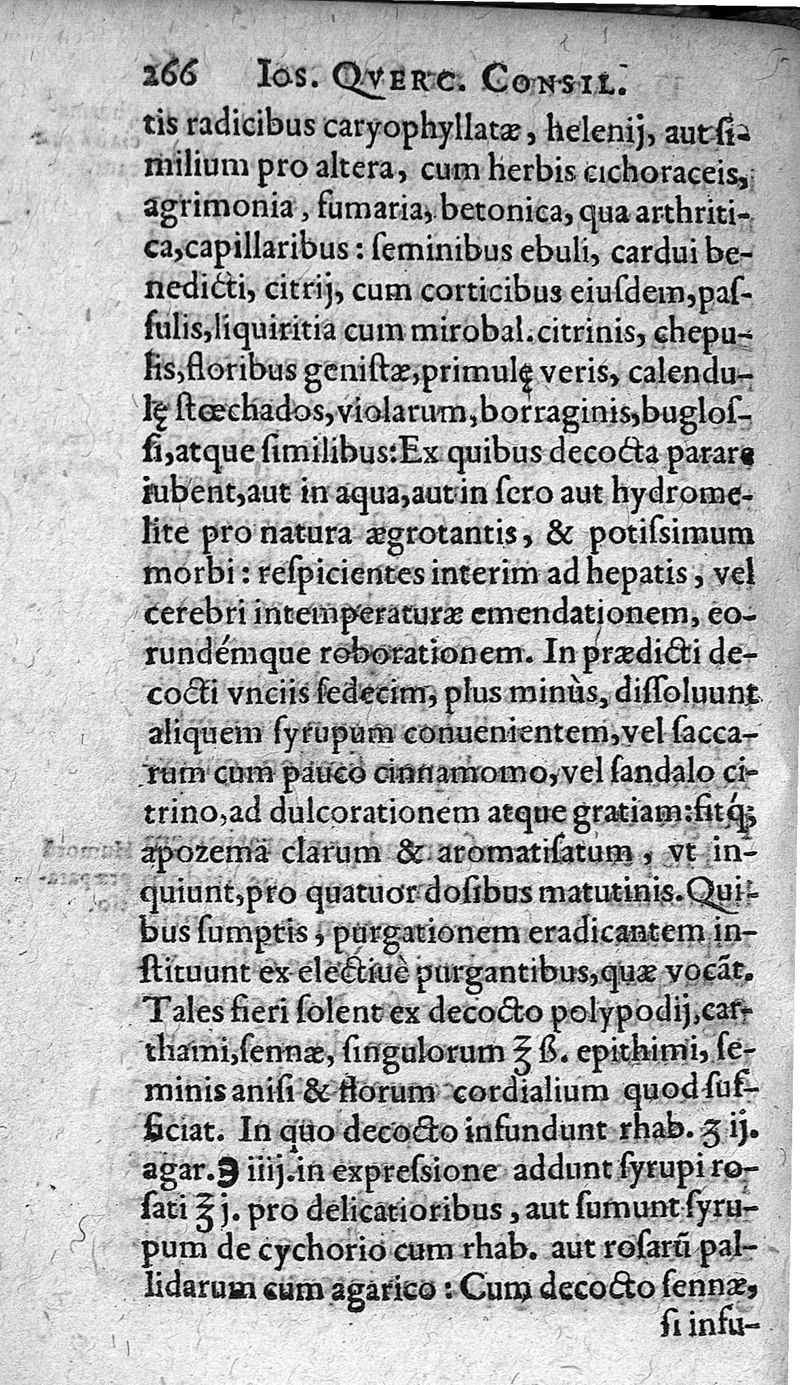 266 Ios. Qverc. Consil.
tis radicibus caryophyllatæ, helenij, aut ſi-
milium pro altera, cum herbis cichoraceis,
agrimonia, fumaria, betonica, qua arthriti-
ca, capillaribus: ſeminibus ebuli, cardui be-
nedicti, citrij, cum corticibus eiuſdem, paſ-
ſulis, liquiritia cum mirobal. citrinis, chepu-
lis, floribus geniſtæ, primulę veris, calendu-
lę ſtœchados, violarum, borraginis, bugloſ-
ſi, atque ſimilibus: Ex quibus decocta parare
iubent, aut in aqua, aut in ſero aut hydrome-
lite pro natura ægrotantis, & potiſsimum
morbi: reſpicientes interim ad hepatis, vel
cerebri intemperaturæ emendationem, eo-
rundémque roborationem. In prædicti de-
cocti vnciis ſedecim, plus minùs, diſſoluunt
aliquem ſyrupum conuenientem, vel ſacca-
rum cum pauco cinnamomo, vel ſandalo ci-
trino, ad dulcorationem atque gratiam: fitq́;
apozema clarum & aromatiſatum, vt in-
quiunt, pro quatuor doſibus matutinis. Qui-
bus ſumptis, purgationem eradicantem in-
ſtituunt ex electiuè purgantibus, quæ vocãt.
Tales fieri ſolent ex decocto polypodij, car-
thami, ſennæ, ſingulorum ℥ ß. epithimi, ſe-
minis aniſi & florum cordialium quod ſuf-
ficiat. In quo decocto infundunt rhab. ʒ ij.
agar. ℈ iiij. in expreſsione addunt ſyrupi ro-
ſati ℥ j. pro delicatioribus, aut ſumunt ſyru-
pum de cychorio cum rhab. aut roſarũ pal-
lidarum cum agarico: Cum decocto ſennæ,
ſi infu-